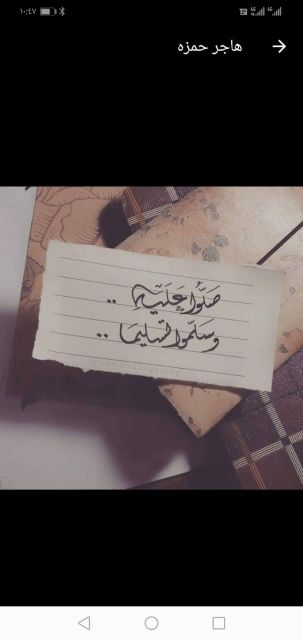 ١٠:٤٧
هاجر حمزه
صَلُّوا عَلَيْهِ ..
وسَلّموا تسليمَا ..